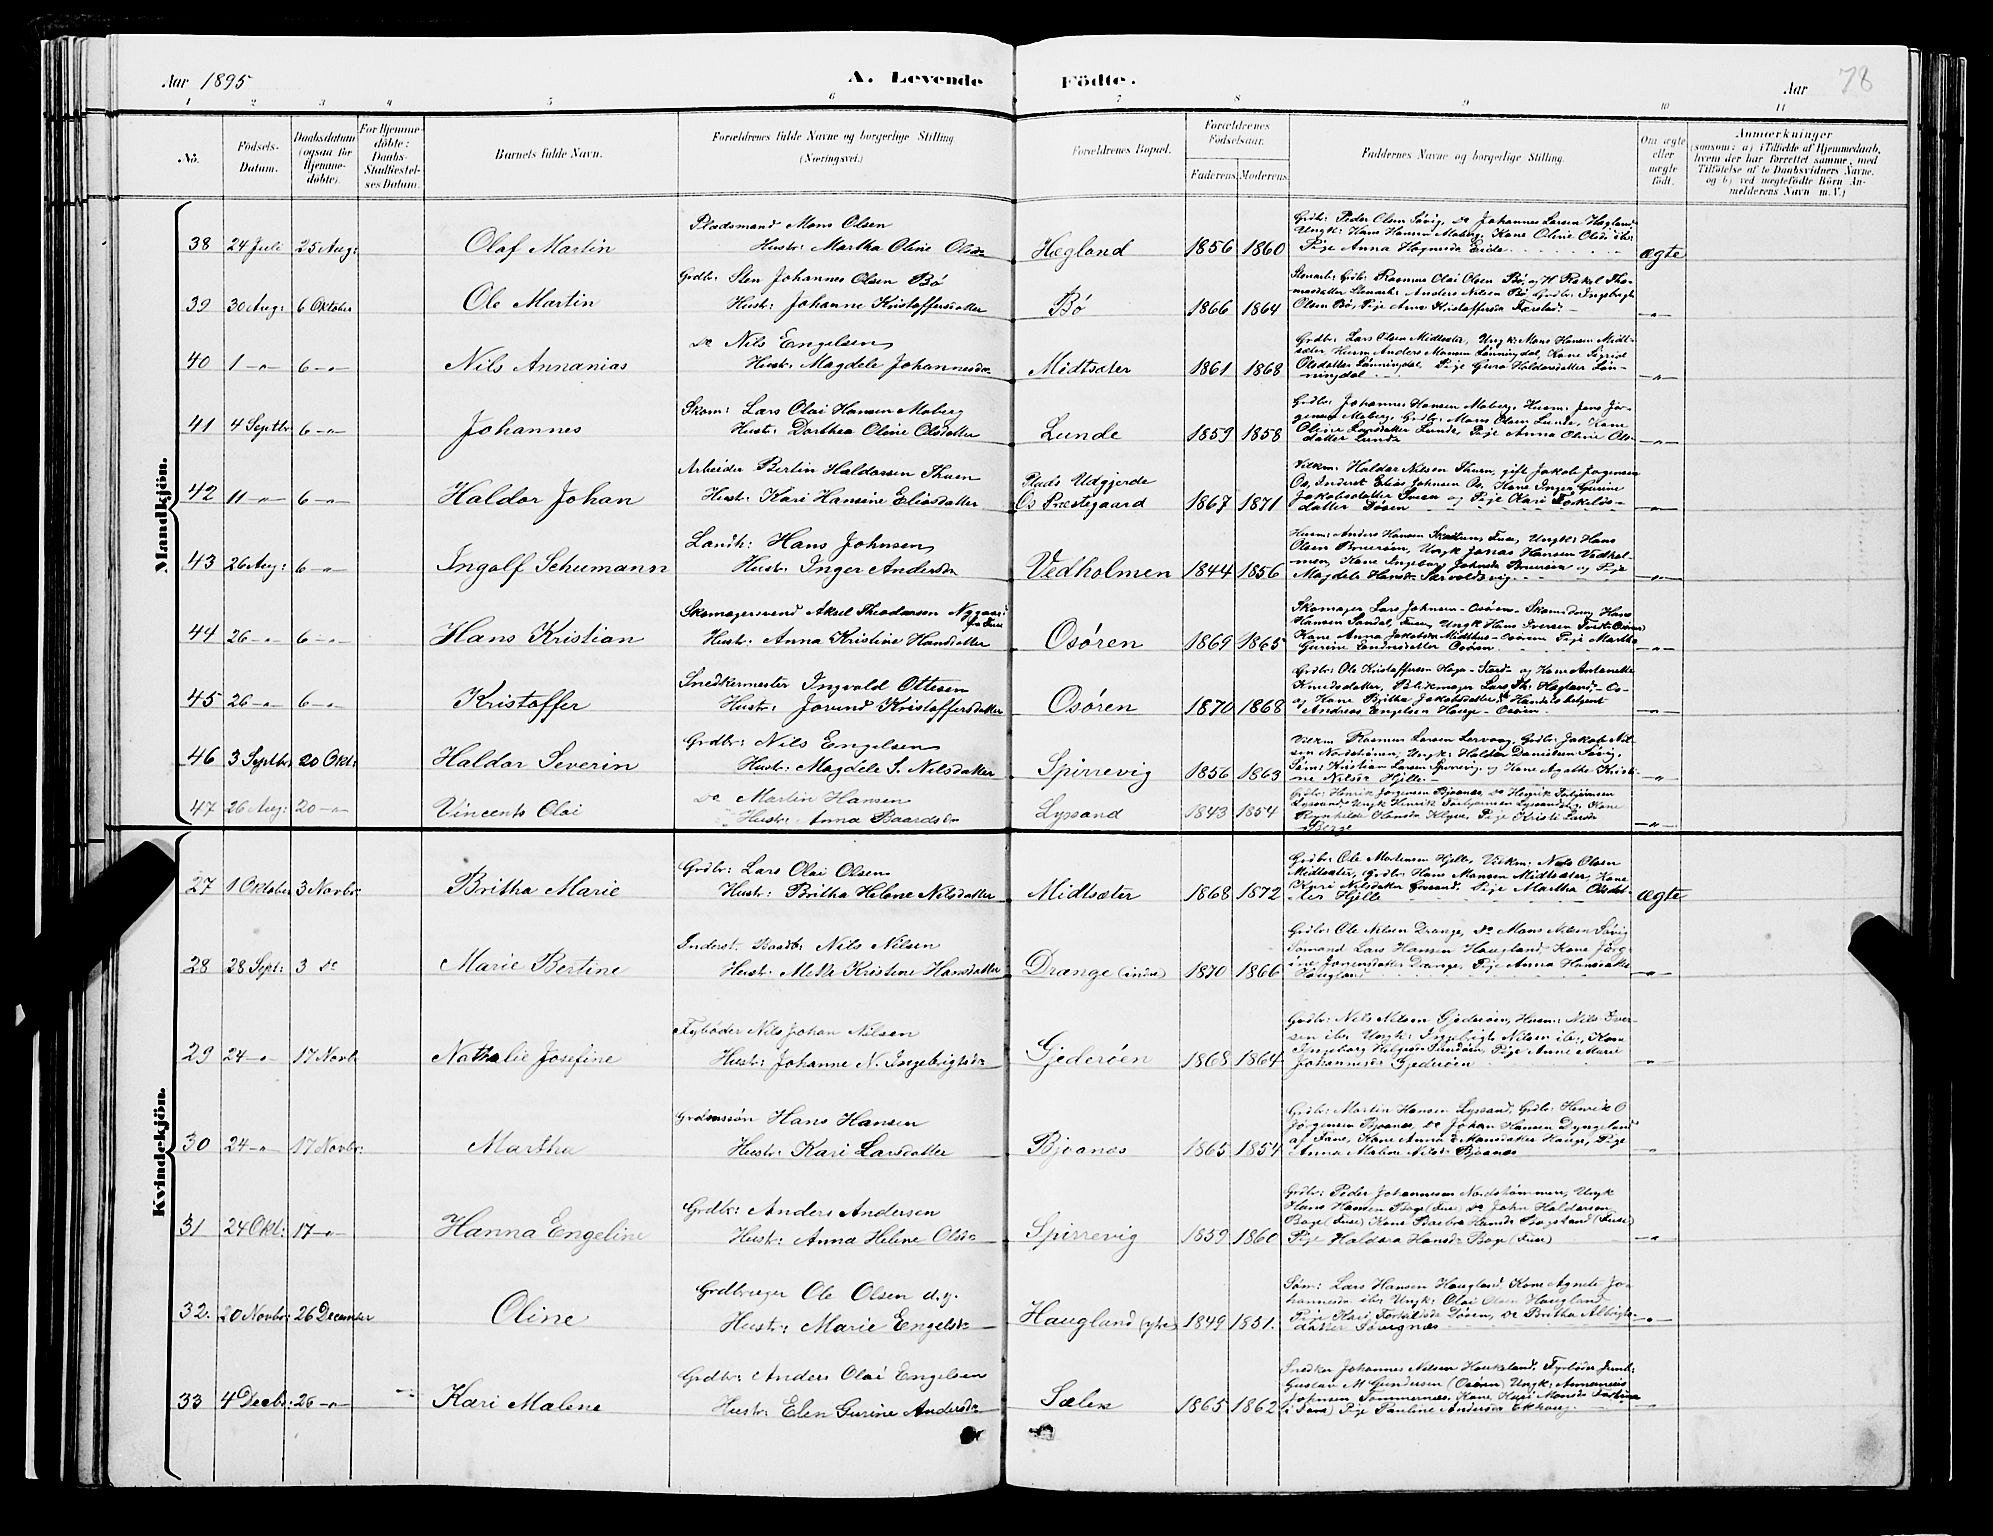 Aar 1895
A. Levende Födte.
Aar 78
1 2 3 4 5 6 7 8 9 10 11
No. Födsels-Datum. Daabsdatum (ogsaa for Hjemme-döbte). For Hjemme-döbte: Daabs-Stadfæstel-ses Datum. Barnets fulde Navn. Forældrenes fulde Navne og borgerlige Stilling (Næringsvei.) Forældrenes Bopæl. Forældrenes Födselsaar. Faderens. Moderens. Faddernes Navne og borgerlige Stilling. Om ægte eller uægte født. Anmærkninger (saasom: a) i Tilfælde af Hjemmedaab, hvem der har forrettet samme, med Tilföielse af to Daabsvidners Navne. og b) ved uægtefödte Börn An-melderens Navn m. V.)
Mandkjön.
38 24 Juli 25 Aug: Olaf Martin Pladsmand Mons Olsen
Hustr: Martha Oline Olsdr Hægland 1856 1860 Grdbr: Peder Olsen Søvig, do Johannes Larsen Hægland
Ungk: Hans Hansen Moberg, Kane Oline Olsdr ibr
Pige Anna Hagnesdr Eide ægte
39 30 Aug: 6 Oktober Ole Martin Grdbr: Sten Johannes Olsen Bø
Hustr: Johanne Kristoffersdatter Bø 1866 1864 Stenarb: Grdbr: Rasmus Olai Olsen Bø, og H. Rakel Tho-
masdatter Stenarb: Anders Nilsen Bø, Grdbr: Ingebrigt
Olsen Bø, Pige Anna Kristoffersdr - " -
40 1 - " - 6 - " - Nils Annanias do Nils Engelsen
Hustr: Magdele Johannesdr Midtsæter 1861 1868 Grdbr: Lars Olsen Midtsæter, Ungk: Mons Hansen Midt-
sæter Husm: Anders Monsen Lønningdal, Kane Sigrid
Olsdatter Lønningdal, Pige Guro Haldorsdatter Løn-
ningdal - " -
41 4 Septbr 6 - " - Johannes Skom: Lars Olai Hansen Moberg
Hustr: Dorthea Oline Olsdatter Lunde 1859 1858 Grdbr: Johannes Hansen Moberg, Husm: Jens Jør-
gensen Moberg, Grdbr: Mons Olsen Lunde, Kane
Oline Larsdatter Lunde, Pige Anna Oline Ols-
datter Lunde - " -
42 11 - " - 6 - " - Haldor Johan Arbeider Bertin Haldorsen Thuen
Hustr: Kari Hansine Eliasdatter Plads Udgjerde
Os Præstegaard 1867 1871 Vilkm: Haldor Nilsen Thuen, gift Jakob Jørgensen
Os, Inderst Elias Johnsen Os, Kane Inger Gurine
Jakobsdatter Tuen og Pige Kari Torkelds-
datter Døsen - " -
43 26 Aug: 6 - " - Ingolf Schumann Landh: Hans Johnsen
Hustr: Inger Andersdr Vedholmen 1844 1856 Husm: Anders Hansen Fuse, Ungk: Hans
Olsen Bruerøen, Ungk Jonas Hansen Vedhol-
men, Kane Ingeborg Johnsdr Bruerøen og Pige
Magdele Hansdr - " -
44 26 - " - 6 - " - Hans Kristian Skomagersvend Aksel Theodorsen Nygaard
fra Fuse
Hustr: Anna Kristine Hansdatter Osøren 1869 1865 Skomager Lars Johnsen - Osøren - Skomdreng Hans
Hansen Sandal, Fusen, Ungk Hans Iversen Osøren
Kane Anna Jakobsdr Midthus - Osøren Pige Martha
Gurine Osøren - " -
45 26 - " - 6 - " - Kristoffer Snedkermester Ingvald Ottesen
Hustr: Jorund Kristoffersdatter Osøren 1870 1868 Grdbr: Ole Kristoffersen Haga - Stord og Kane Antonette
Knudsdatter, Blikmager Lars Th: Hægland - Os -
og Kane Britha Jakobsdatter & Handelsbetjent
Andreas Engelsen Hauge - Osøren - " -
46 3 Septbr. 20 Okt: Haldor Severin Grdbr: Nils Engelsen
Hustr: Magdele S. Nilsdatter Spirrevig 1856 1863 Vilkm Rasmus Larsen Lervaag, Grdbr: Jakob Nil-
sen Nordstrønen, Ungk: Haldor Danielsen Søvig,
Søm: Kristian Larsen Spirrevig og Kane Agathe Kristi-
ne Nilsdr Hjelle - " -
47 26 Aug: 20 - " - Vincents Olai do Martin Hansen
Hustr: Anna Baardsdr Lyssand 1843 1854 Grdbr: Henrik Jørgensen Bjoanes, do Henrik Torbjørnsen
Lyssand, Ungk Henrik Torbjørnsen Lyssand, Kane
Ragnhilde Hansdr Klyve, Pige Kristi Larsdr
Berge - " -
Kvindekjön.
27 1 Oktober 3 Novbr: Britha Marie Grdbr: Lars Olai Olsen
Hustr: Britha Helene Nilsdatter Midtsæter 1868 1872 Grdbr: Ole Mortensen Hjelle, Vilkm: Nils Olsen
Midtsæter, Grdbr: Hans Monsen Midtsæter, Kane
Kari Nilsdatter Lyssand, Pige Martha Olsdat-
ter Hjelle ægte
28 28 Sept: 3 do Marie Bertine Inderst, Baadb: Nils Nilsen
Hustr: Mette Kristine Hansdatter Drange (indre) 1870 1866 Grdbr: Ole Nilsen Drange, do Mons Nilsen Søvig
Sømand Lars Hansen Haugland, Kane Jørg-
ine Jonensdatter Drange, Pige Anna Hansdatter
Haugland - " -
29 24 - " - 17 Novb: Nathalie Josefine Fyrbøder Nils Johan Nilsen
Hustr: Johanne N. Ingebrigtsdr Gjederøen 1868 1864 Grdbr: Nils Nilsen Gjederøen, Husm: Nils Iver-
sen ibr, Ungk: Ingebrigt Nilsen ibr, Kone
Ingeborg Helgesdr Sundøen, Pige Anne Marie
Johannesdr Gjederøen "
30 24 - " - 17 Novbr: Martha Grdmanssøn Hans Hansen
Hustr: Kari Larsdatter Bjoanes 1865 1854 Grdbr: Martin Hansen Lyssand, Grdbr: Henrik O
Jørgensen Bjoanes, do Johan Hansen Dyngeland
af Fane, Kane Anna Monsdatter Hauge, Pige
Anna Malene Nilsdr Bjoanes "
31 24 Okt: 17 - " - Hanna Engeline Grdbr: Anders Andersen
Hustr: Anna Helene Olsdr Spirrevig 1859 1860 Grdbr: Peder Johannesen Nordstrømmen, Ungk
Hans Hansen Boge (Fuse) do John Haldorsen
Boge (Fuse) Kane Barbra Hansdr Bogstrand (Fuse)
Pige Haldora Hansdr Boge (Fuse) - " -
32. 20 Novbr: 26 December Oline Grdbruger Ole Olsen d.y.
Hustr: Marie Engelsdr Haugland (ytre) 1849 1851. Søm: Lars Hansen Haugland, Kane Agnete Jo-
hannesdr ibr Ungk: Olai Olsen Haugland
Pige Kari Torkelsdr Døsen, do Britha Albrigts-
datter - " -
33 4 Decbr: 26 - " - Kari Malene Grdbr: Anders Olai Engelsen
Hustr: Elen Gurine Andersdr Sælen 1865 1862 Snedker Johannes Nilsen Haukeland, Fyrbøder
Gustav M Gundersen (Osøren) Ungk: Annanias
Johnsen Tømmernes, Kane Kari Monsdr
i Fana) Pige Pauline Andersdr Ekhaug - " -